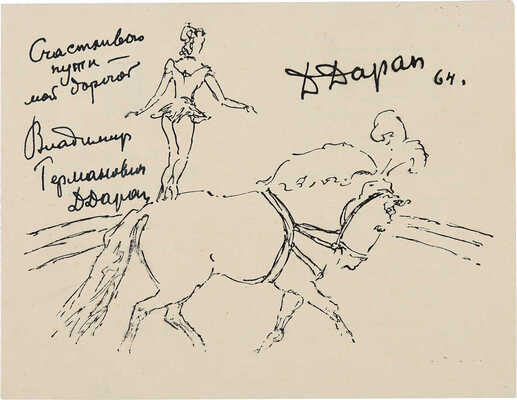 Счастливого
пути
мой дорогой
Владимир
Германович
ДДаран
ДДаран 64.